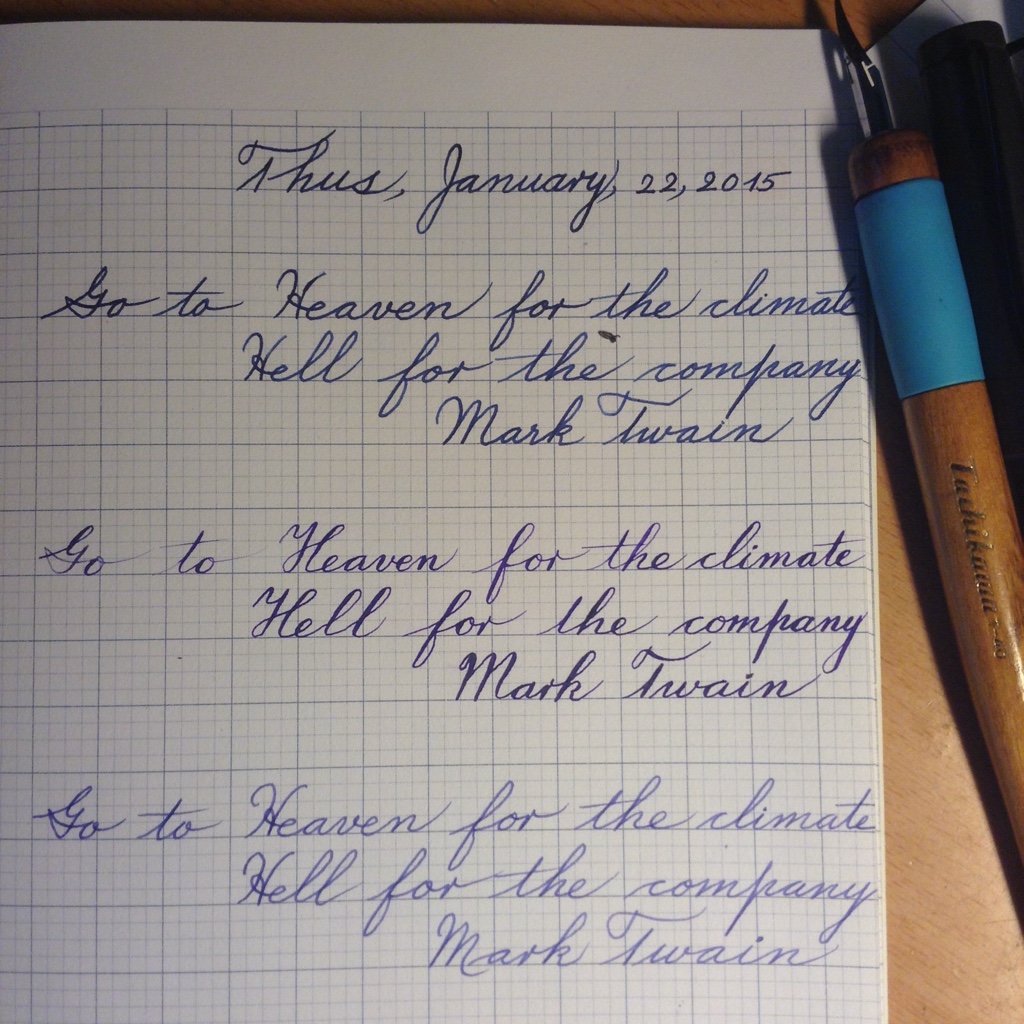 Thus, January, 22, 2015
Go to Heaven for the climate
Hell for the company
Mark Twain
Go to Heaven for the climate
Hell for the company
Mark Twain
Go to Heaven for the climate
Hell for the company
Mark Twain
Tachikawa T-40